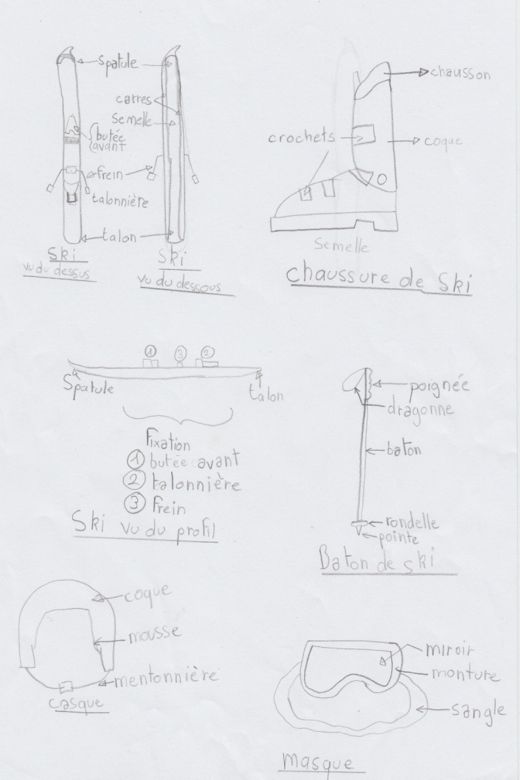 Spatule
carres
Semelle
butée
avant
frein
talonnière
talon
Ski
vu du dessus
Ski
vu du dessous
chausson
crochets
coque
Semelle
chaussure de Ski
1 3 2
Spatule
talon
Fixation
1 butée avant
2 talonnière
3 frein
Ski vu du profil
poignée
dragonne
baton
rondelle
pointe
Baton de ski
coque
mousse
mentonnière
casque
miroir
monture
sangle
masque